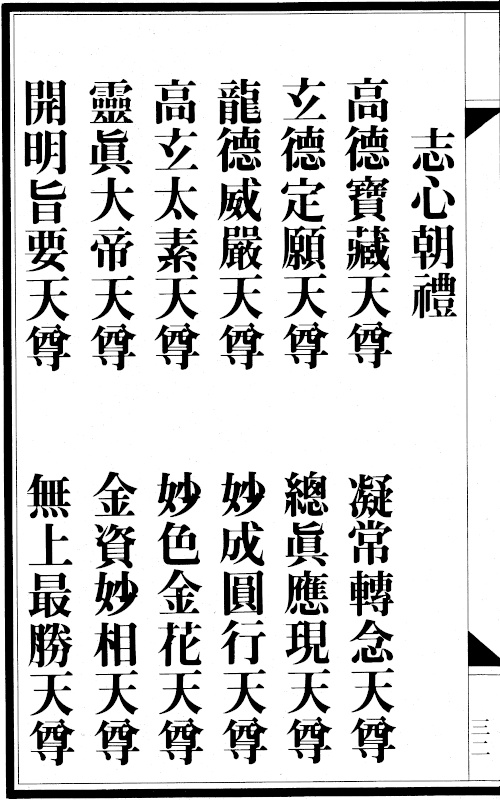 志心朝禮
高德寶藏天尊 凝常轉念天尊
玄德定願天尊 總眞應現天尊
龍德威嚴天尊 妙成圓行天尊
高玄太素天尊 妙色金花天尊
靈眞大帝天尊 金資妙相天尊
開明旨要天尊 無上最勝天尊